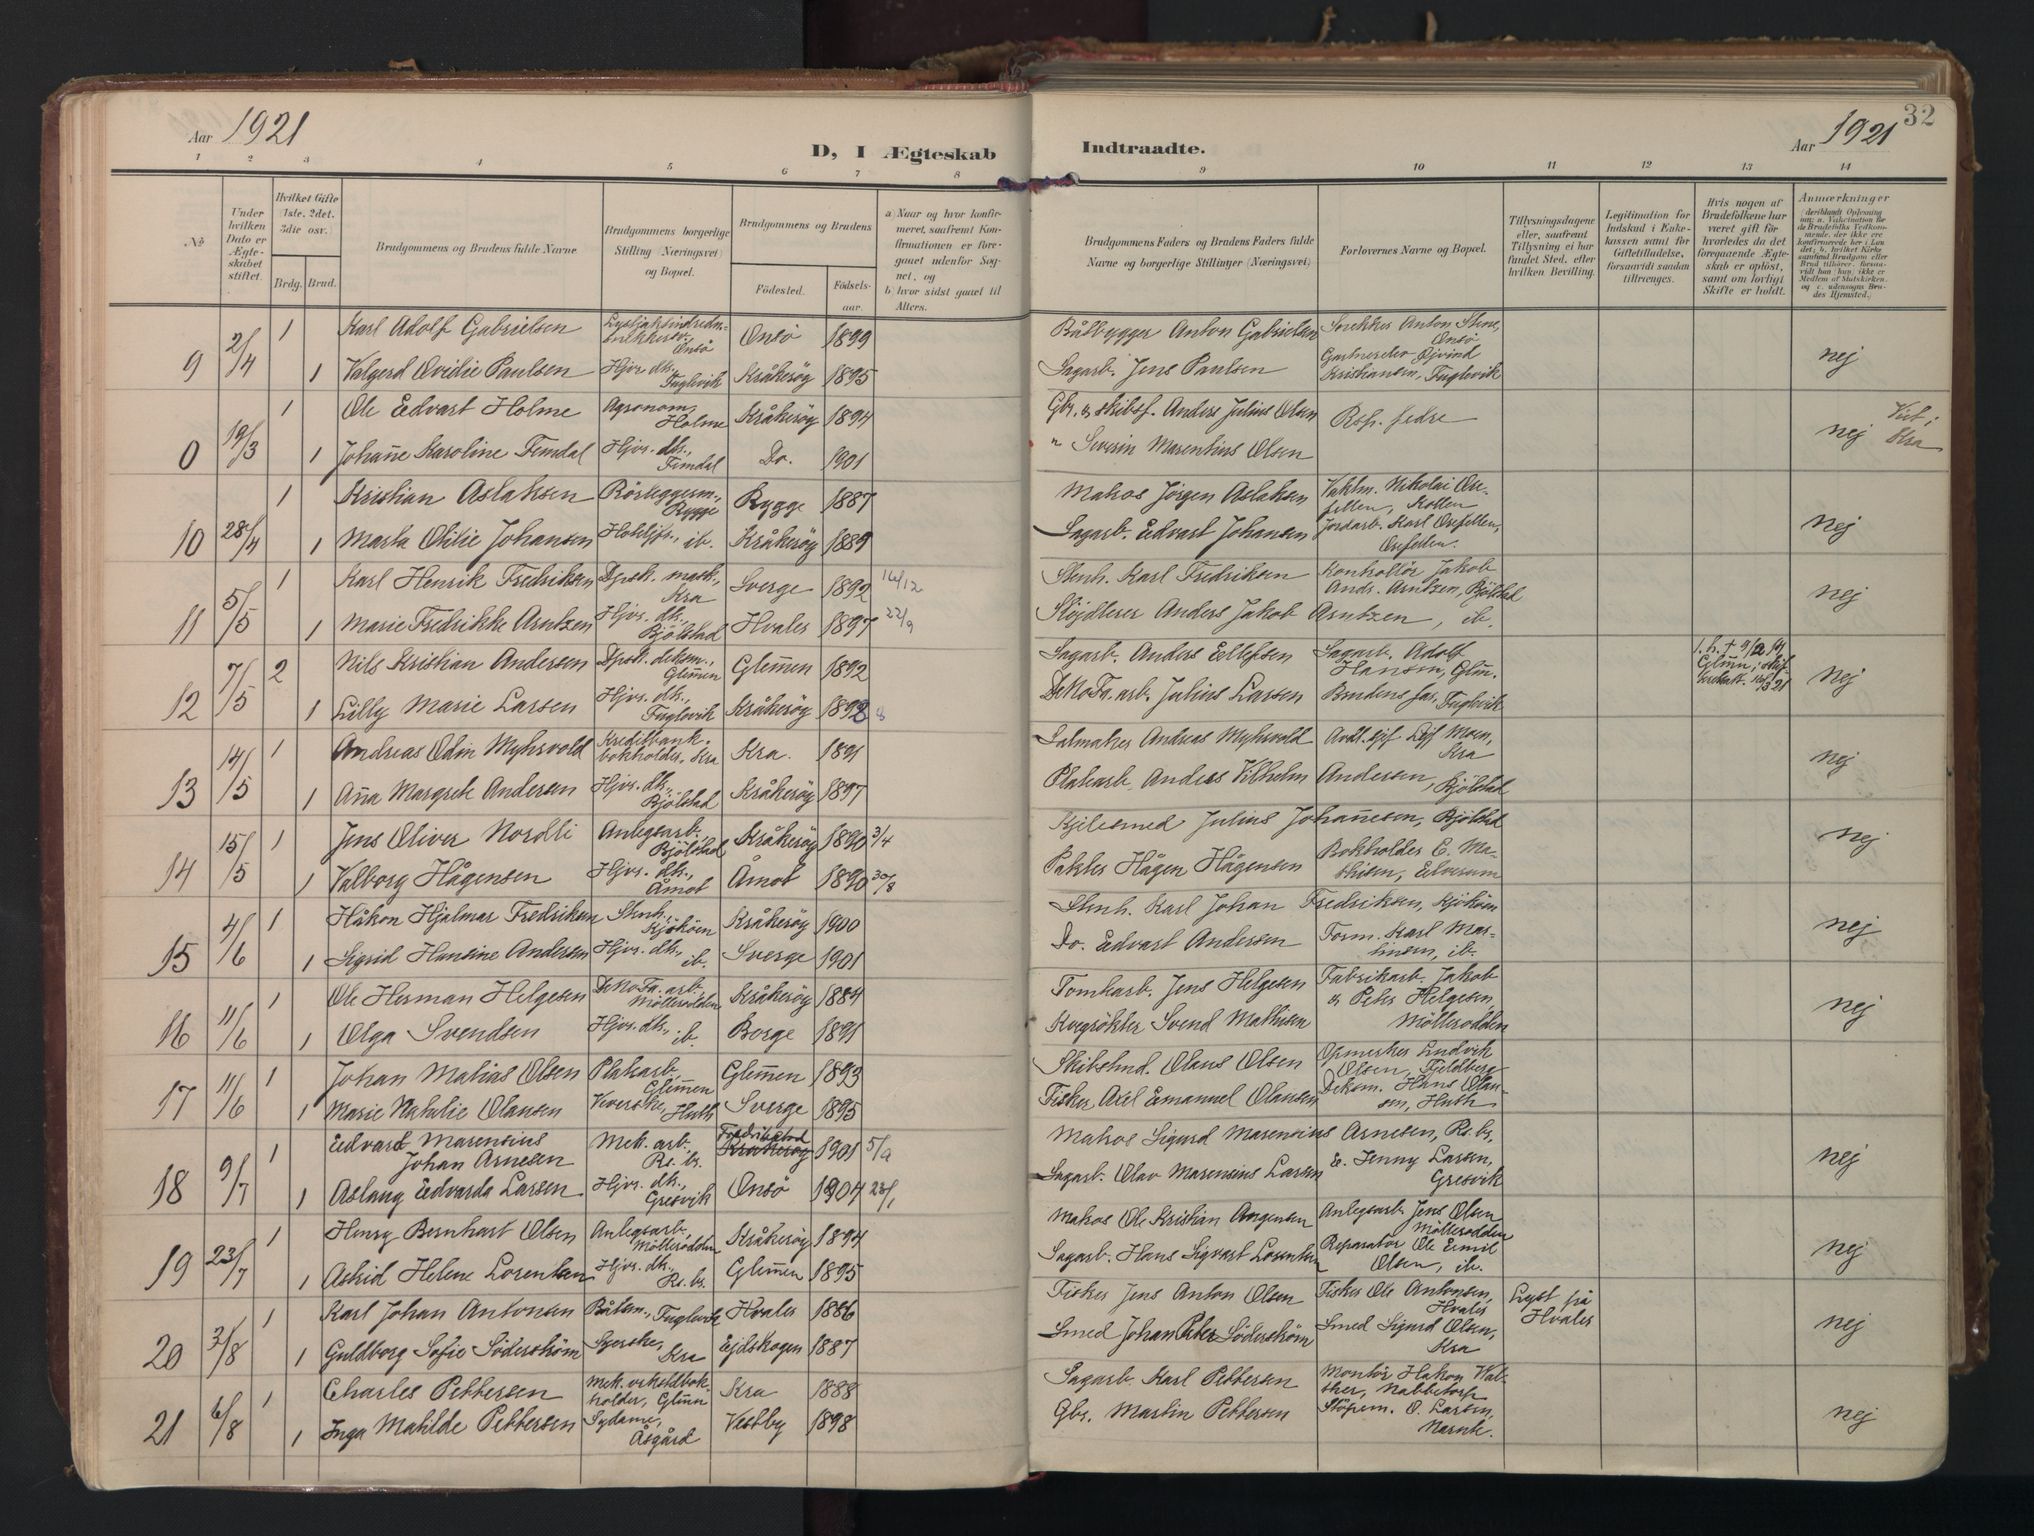 Aar 1921
D, I Ægteskab Indtraadte.
Aar 1921
32
1 2 3 4 5 6 7 8 9 10 11 12 13 14
No
Under hvilken Dato er Ægteskabet stiftet.
Hvilket Gifte 1ste. 2det. 3die osv.
Brdg. Brud.
Brudgommens og Brudens fulde Navne.
Brudgommens borgerlige Stilling (Næringsvei) og Bopæl.
Brudgommens og Brudens
Fødested. Fødselsaar.
a) Naar og hvor konfirmeret, saafremt Konfirmationen er foregaaet udenfor Sognet, og
b) hvor sidst gaaet til Alters.
Brudgommens Faders og Brudens Faders fulde Navne og borgerlige Stillinger (Næringsvei)
Forlovernes Navne og Bopæl.
Tillysningsdagene eller, saafremt Tillysning ei har fundet Sted, efter hvilken Bevilling.
Legitimation for Indskud i Enkekassen samt for Giftetilladelse, forsaavidt saadan tiltrænges.
Hvis nogen af Brudefolkene har været gift før hvorledes da det foregaaende Ægteskab er opløst, samt om lovligt Skifte er holdt.
Anmærkninger
9 2/4 1 Karl Adolf Gabrielsen Onsö Onsö 1899 Båtbygger Anton Gabrielsen Snekker Anton Stene, Onsö
1 Valgerd Ovidie Paulsen Hjvr. dk., Fuglevik Kråkeröy 1895 Sagarb. Jens Paulsen Gartnerelev Øjvind Kristiansen, Fuglevik nej
0 19/3 1 Ole Edvart Holme Agronom, Holme Kråkeröy 1894 Gbr. & skibsf. Anders Julius Olsen Resp. fedre
1 Johanne Karoline Femdal Hjvr. dk., Femdal Do. 1901 " Severin Marentius Olsen nej Viet i Kra
10 28/4 1 Kristian Aslaksen Rörleggerm., Rygge Rygge 1887 Matros Jörgen Aslaksen Vaktm. Nikolai Orefellen, Kollen
1 Marta Otilie Johansen ib. Kråkeröy 1889 Sagarb. Edvart Johansen Jordarb. Karl Orefellen, Orefellen. nej
11 5/5 1 Karl Henrik Fredriksen Dpsk. mask., Kra Sverge 1892 16/12 Stenh. Karl Fredriksen Kontrollör Jakob Andr. Arntzen, Bjölstad
1 Marie Fredrikke Arntzen Hjvr. dk., Bjölstad Hvaler 1897 22/9 Slöjdlærer Anders Jakob Arntzen, ib. nej
12 7/5 2 Nils Kristian Andersen Dpsk. deksm., Glemmen Glemmen 1892 Sagarb. Anders Ellefsen Sagarb. Adolf Hansen, Glm.
1 Lilly Marie Larsen Hjvr. dk., Fuglevik Kråkeröy 1898 8 DeNoFa. arb. Julius Larsen Brudens far, Fuglevik nej
13 14/5 1 Andreas Odin Myhrvold Kreditbankbokholder, Kra Kra. 1891 Salmaker Andreas Myhrvold Avdl. sjef Leif Moen, Kra
1 Anna Margrete Andersen Hjvr. dk., Bjölstad Kråkeröy 1897 Platearb. Anders Vilhelm Andersen, Bjölstad nej
14 15/5 1 Jens Oliver Nordli Anlegsarb., Bjölstad Kråkeröy 1890 3/4 Kjelesmed Julius Johannesen, Bjölstad
1 Valborg Hågensen Hjvr. dk., Åmot Åmot 1890 30/8 Pakter Hågen Hågensen Bokholder E. Matisen, Elverum nej
15 4/6 1 Håkon Hjalmar Fredriksen Stenh., Kjököen Kråkeröy 1900 Stenh. Karl Johan Fredriksen, Kjököen
1 Sigrid Hansine Andersen Hjvr. dk., ib. Sverge 1901 Do. Edvart Andersen Form. Karl Martinsen, ib. nej
16 11/6 1 Ole Herman Helgesen DeNoFa. arb., Möllerodden Kråkeröy 1884 Tomtarb. Jens Helgesen Fabrikarb. Jakob & Peter Helgesen, Möllerodden
1 Olga Svendsen Hjvr. dk., ib. Borge 1891 Kvegrökter Svend Mathisen nej
17 11/6 1 Johan Matias Olsen Platearb., Glemmen Glemmen 1893 Skibstmd. Olaus Olsen Opmerker Ludvik Olsen, Fjeldberg
1 Marie Natalie Olausen Veverske, Huth Sverge 1895 Fisker Axel Emanuel Olausen Deksm. Hans Olausen, Huth nej
18 9/7 1 Edvard Marensius Johan Arnesen Mek. arb. Rs. br. Fredrikstad Kråkeröy 1901 5/9 Matros Sigurd Marensius Arnesen, Rs. br.
1 Aslaug Edvarda Larsen Hjvr. dk., Gresvik Onsö 1904 23/1 Sagarb. Olav Marensius Larsen E. Jenny Larsen, Gresvik nej
19 23/7 1 Henry Bernhart Olsen Anlegsarb., Möllerodden Kråkeröy 1894 Matros Ole Kristian Anlegsarb. Jens Olsen Möllerodden
1 Astrid Helene Lorentsen Hjvr. dk., Rs. br. Glemmen 1895 Sagarb. Hans Sigvart Lorentsen Reparatör Ole Emil Olsen, ib. nej
20 3/8 1 Karl Johan Antonsen Båtsm., Fuglevik Hvaler 1886 Fisker Jens Anton Olsen Fisker Ole Antonsen, Hvaler Lyst på Hvaler
1 Guldborg Sofie Söderström Syerske, Kra Ejdskogen 1887 Smed Johan Peter Söderström Smed Sigurd Olsen, Kra nej
21 6/8 1 Charles Pettersen Mek. verkstdbokholder, Glmn Kra 1888 Sagarb. Karl Pettersen Montör Hakon Walther, Nabbetorp
1 Inga Matilde Pettersen Sydame, Åsgård Vestby 1898 Gbr. Martin Pettersen O. Larsen, nej